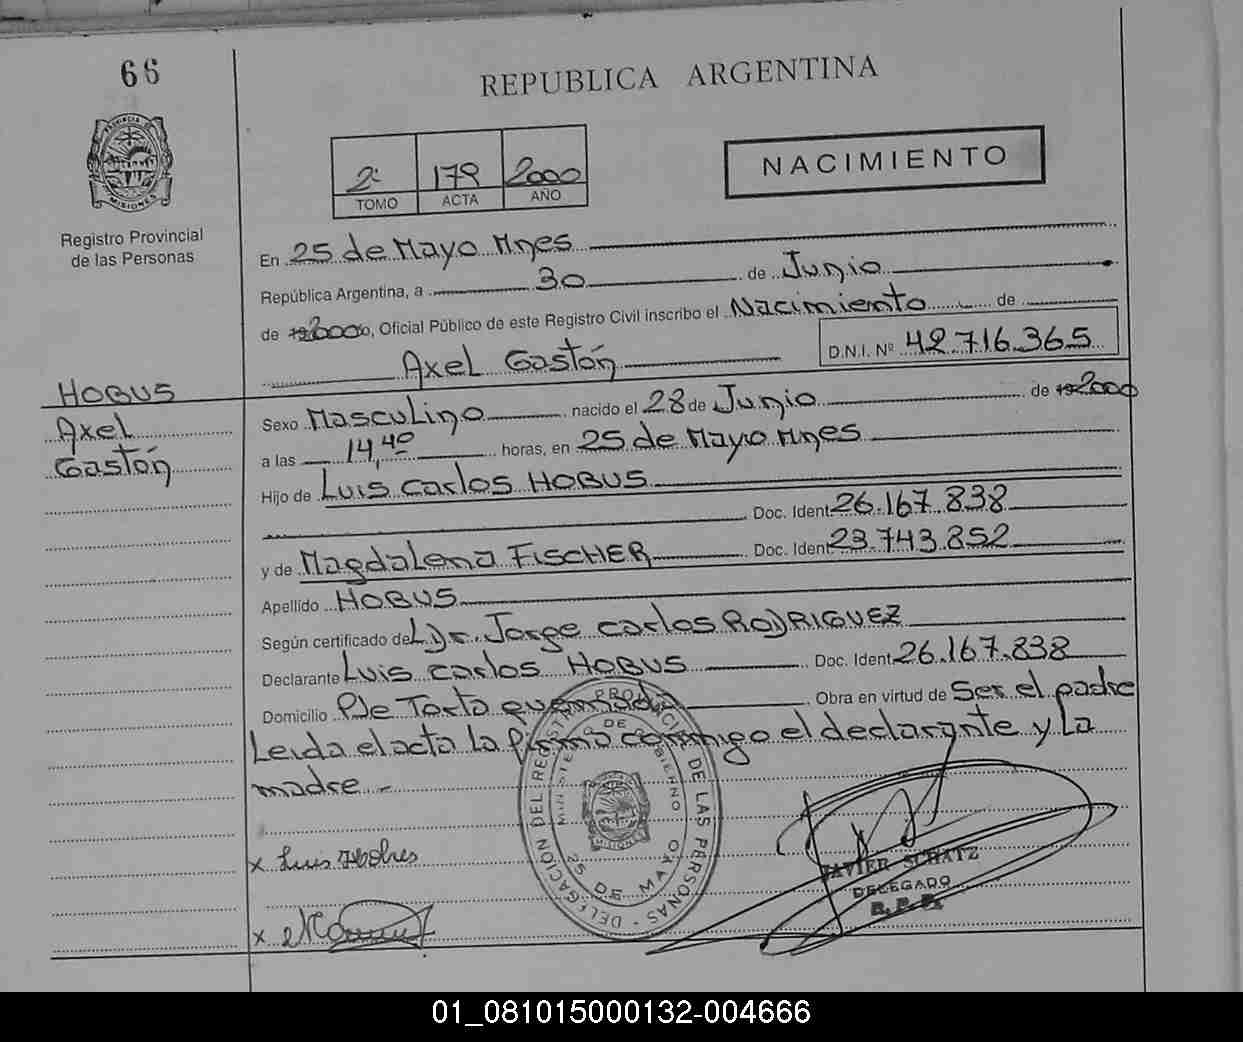 66
REPUBLICA ARGENTINA
PROVINCIA DE
MISIONES
Registro Provincial
de las Personas
2º 179 2000
TOMO ACTA AÑO
NACIMIENTO
En 25 de Mayo Mnes
República Argentina, a 30 de Junio
de 2000, Oficial Público de este Registro Civil inscribo el Nacimiento de
Axel Gastón D.N.I. Nº 42.716.365
HOBUS
Axel
Gastón
Sexo Masculino nacido el 28 de Junio de 2000
a las 14,40 horas, en 25 de Mayo Mnes
Hijo de Luis Carlos HOBUS
Doc. Ident. 26.167.838
y de Magdalena FISCHER Doc. Ident. 23.743.852
Apellido HOBUS
Según certificado del Dr. Jorge Carlos RODRIGUEZ
Declarante Luis Carlos HOBUS Doc. Ident. 26.167.838
Domicilio Pje Torta quemada Obra en virtud de Ser el padre
Leida el acta la firma conmigo el declarante y La
madre.-
DELEGACIÓN DEL REGISTRO PROVINCIAL DE LAS PERSONAS - 25 DE MAYO
MINISTERIO DE GOBIERNO
MISIONES
x Luis
x
JAVIER SCHATZ
DELEGADO
R. P. P.
01_081015000132-004666